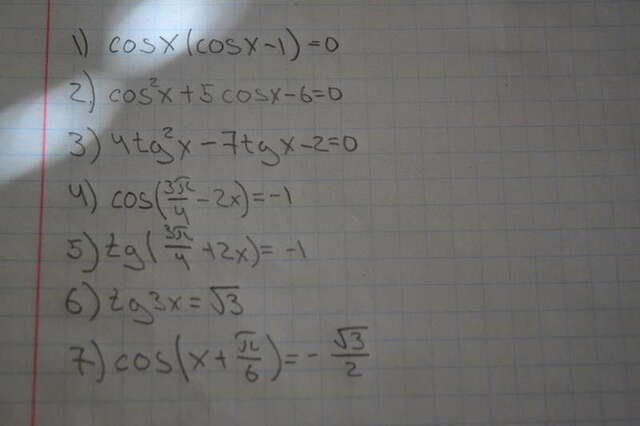 1) cosx(cosx-1)=0
2) cos²x+5cosx-6=0
3) 4tg²x-7tgx-2=0
4) cos(3π/4-2x)=-1
5) tg(3π/4+2x)=-1
6) tg3x=√3
7) cos(x+π/6)=-√3/2